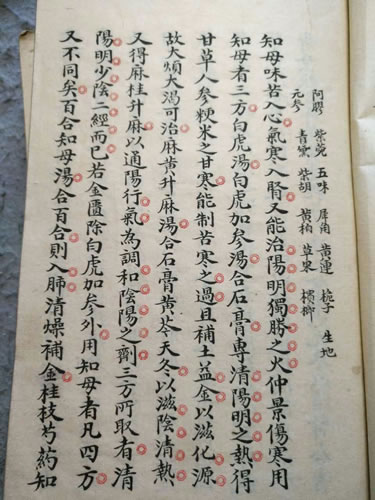 阿膠 紫菀 五味 犀角 黃連 梔子 生地
元參 青黛 紫胡 黃柏 草果 檳榔
知母味苦入心氣寒入腎又能治陽明獨勝之火仲景傷寒用
知母者三方白虎湯白虎加參湯合石膏專清陽明之熱得
甘草人參粳米之甘寒能制苦寒之過且補土益金以滋化源
故大煩大渴可治麻黃升麻湯合石膏黃芩天冬以滋陰清熱
又得麻桂升麻以通陽行氣為調和陰陽之劑三方所取者清
陽明少陰二經而已若金匱除白虎加參外用知母者凡四方
又不同矣百合知母湯合百合則入肺清燥補金桂枝芍藥知